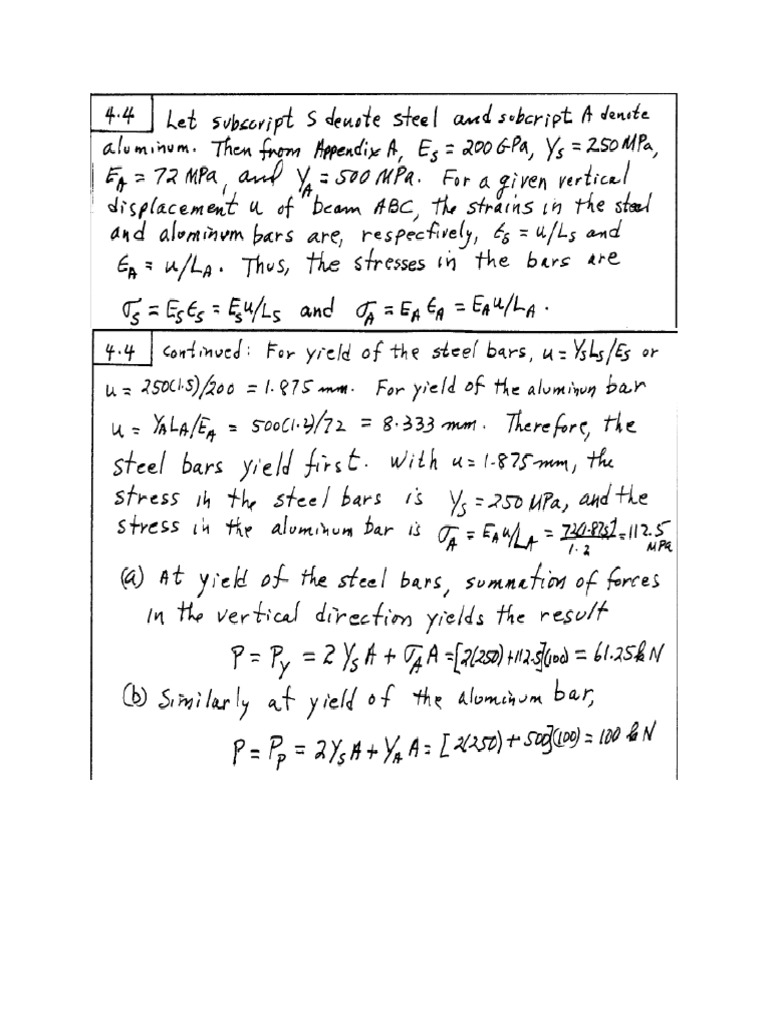 4.4 Let subscript S denote steel and subcript A denote
aluminum. Then from Appendix A, E_S = 200 GPa, Y_S = 250 MPa,
E_A = 72 MPa, and Y_A = 500 MPa. For a given vertical
displacement u of beam ABC, the strains in the steel
and aluminum bars are, respectively, ϵ_S = u/L_S and
ϵ_A = u/L_A. Thus, the stresses in the bars are
σ_S = E_S ϵ_S = E_S u/L_S and σ_A = E_A ϵ_A = E_A u/L_A.
4.4 continued: For yield of the steel bars, u = Y_S L_S/E_S or
u = 250(1.5)/200 = 1.875 mm. For yield of the aluminum bar
u = Y_A L_A/E_A = 500(1.2)/72 = 8.333 mm. Therefore, the
steel bars yield first. With u = 1.875 mm, the
stress in the steel bars is Y_S = 250 MPa, and the
stress in the aluminum bar is σ_A = E_A u/L_A = 72(1.875)/1.2 = 112.5 MPa
(a) At yield of the steel bars, summation of forces
in the vertical direction yields the result
P = P_y = 2 Y_S A + σ_A A = [2(250) + 112.5](100) = 61.25 kN
(b) Similarly at yield of the aluminum bar,
P = P_p = 2 Y_S A + Y_A A = [2(250) + 500](100) = 100 kN